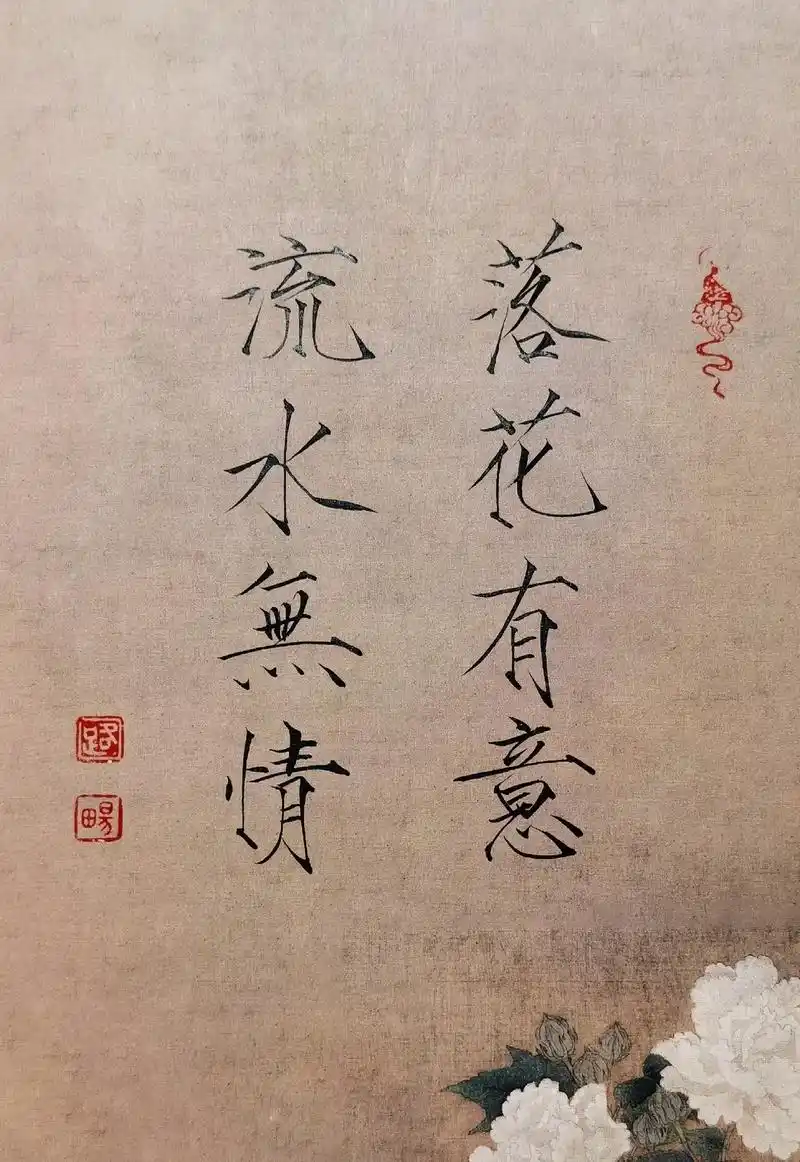 落花有意
流水無情
路
暘